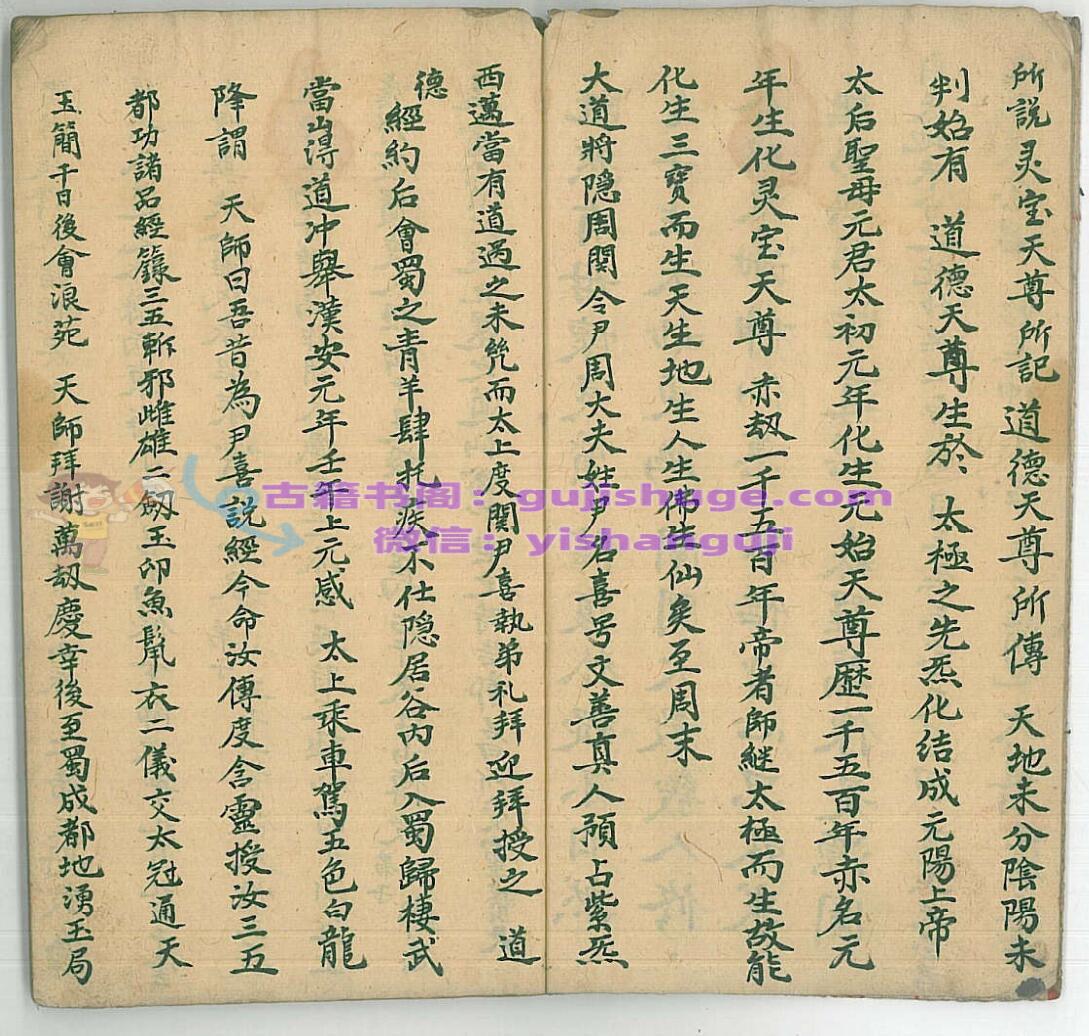 所說灵宝天尊所記道德天尊所傳　天地未分陰陽未
判始有　道德天尊生於　太極之先炁化結成元陽上帝
太后聖母元君太初元年化生元始天尊歷一千五百年赤名元
年生化灵宝天尊　赤刼一千五百年帝者師継太極而生故能
化生三寶而生天生地生人生佛生仙矣至周末
大道將隐周関令尹周大夫姓尹名喜号文善真人預占紫炁
西邁當有道過之未幾而太上度関尹喜執弟礼拜迎拜授之　道
德經約后會蜀之青羊肆托疾不仕隐居谷内后入蜀歸棲武
當山得道冲舉漢安元年壬午上元感　太上乘車駕五色白龍
降謂　天師曰吾昔為尹喜説經今命汝傳度含靈授汝三五
都功諸品經籙三五斬邪雌雄二劔玉印魚鬣衣二儀交太冠通天
玉簡千日後會浪苑　天師拜謝萬刼慶幸後至蜀成都地湧玉局
古籍书阁：gujishuge.com
微信：yishanguji